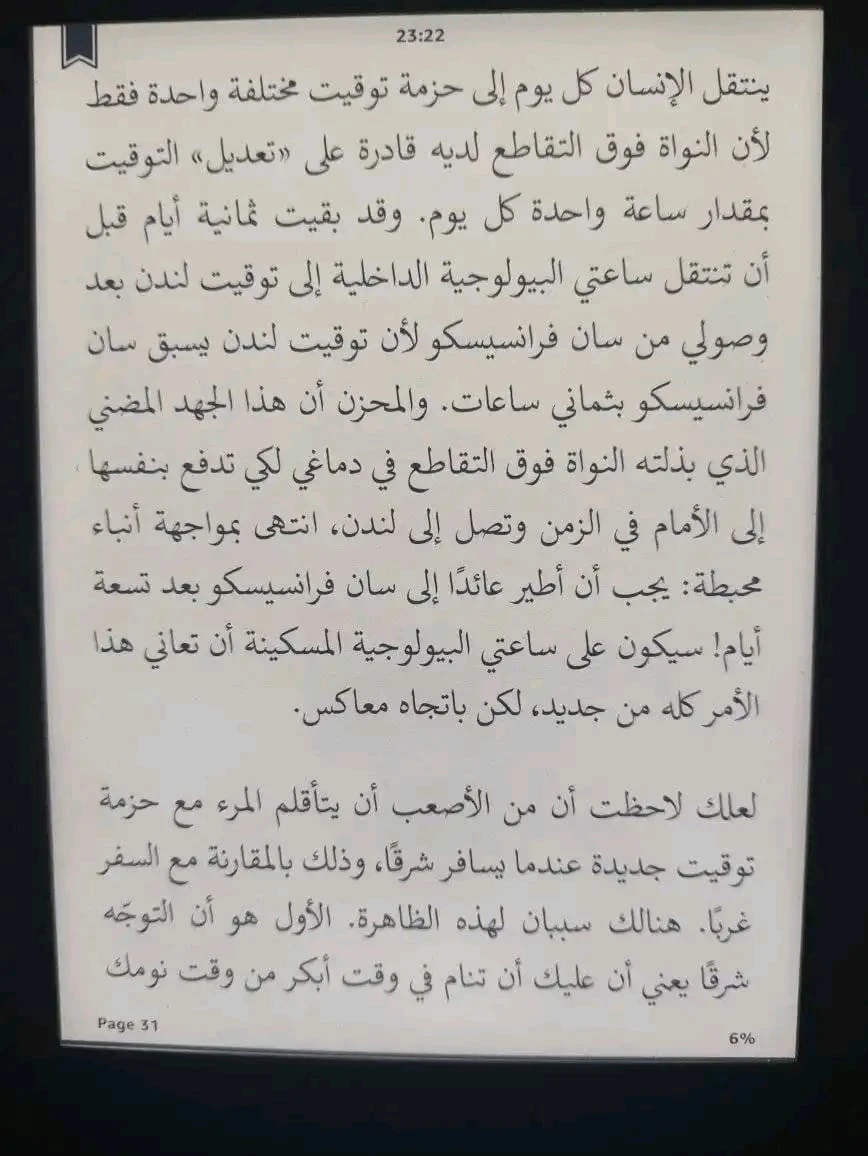 23:22
ينتقل الإنسان كل يوم إلى حزمة توقيت مختلفة واحدة فقط
لأن النواة فوق التقاطع لديه قادرة على «تعديل» التوقيت
بمقدار ساعة واحدة كل يوم. وقد بقيت ثمانية أيام قبل
أن تنتقل ساعتي البيولوجية الداخلية إلى توقيت لندن بعد
وصولي من سان فرانسيسكو لأن توقيت لندن يسبق سان
فرانسيسكو بثماني ساعات. والمحزن أن هذا الجهد المضني
الذي بذلته النواة فوق التقاطع في دماغي لكي تدفع بنفسها
إلى الأمام في الزمن وتصل إلى لندن، انتهى بمواجهة أنباء
محبطة: يجب أن أطير عائدًا إلى سان فرانسيسكو بعد تسعة
أيام! سيكون على ساعتي البيولوجية المسكينة أن تعاني هذا
الأمر كله من جديد، لكن باتجاه معاكس.
لعلك لاحظت أن من الأصعب أن يتأقلم المرء مع حزمة
توقيت جديدة عندما يسافر شرقًا، وذلك بالمقارنة مع السفر
غربًا. هنالك سببان لهذه الظاهرة. الأول هو أن التوجّه
شرقًا يعني أن عليك أن تنام في وقت أبكر من وقت نومك
Page 31
6%